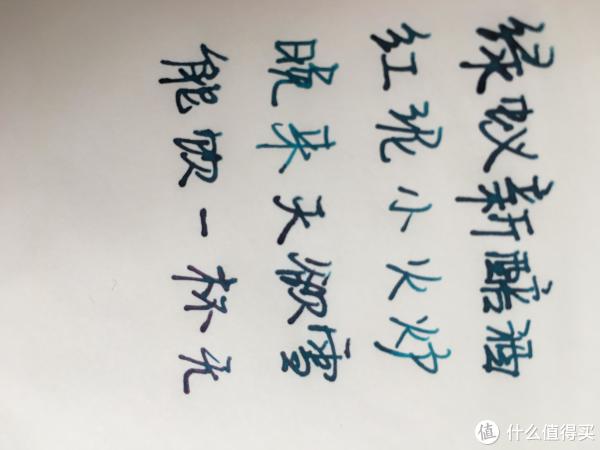 绿蚁新醅酒
红泥小火炉
晚来天欲雪
能饮一杯无
值 什么值得买